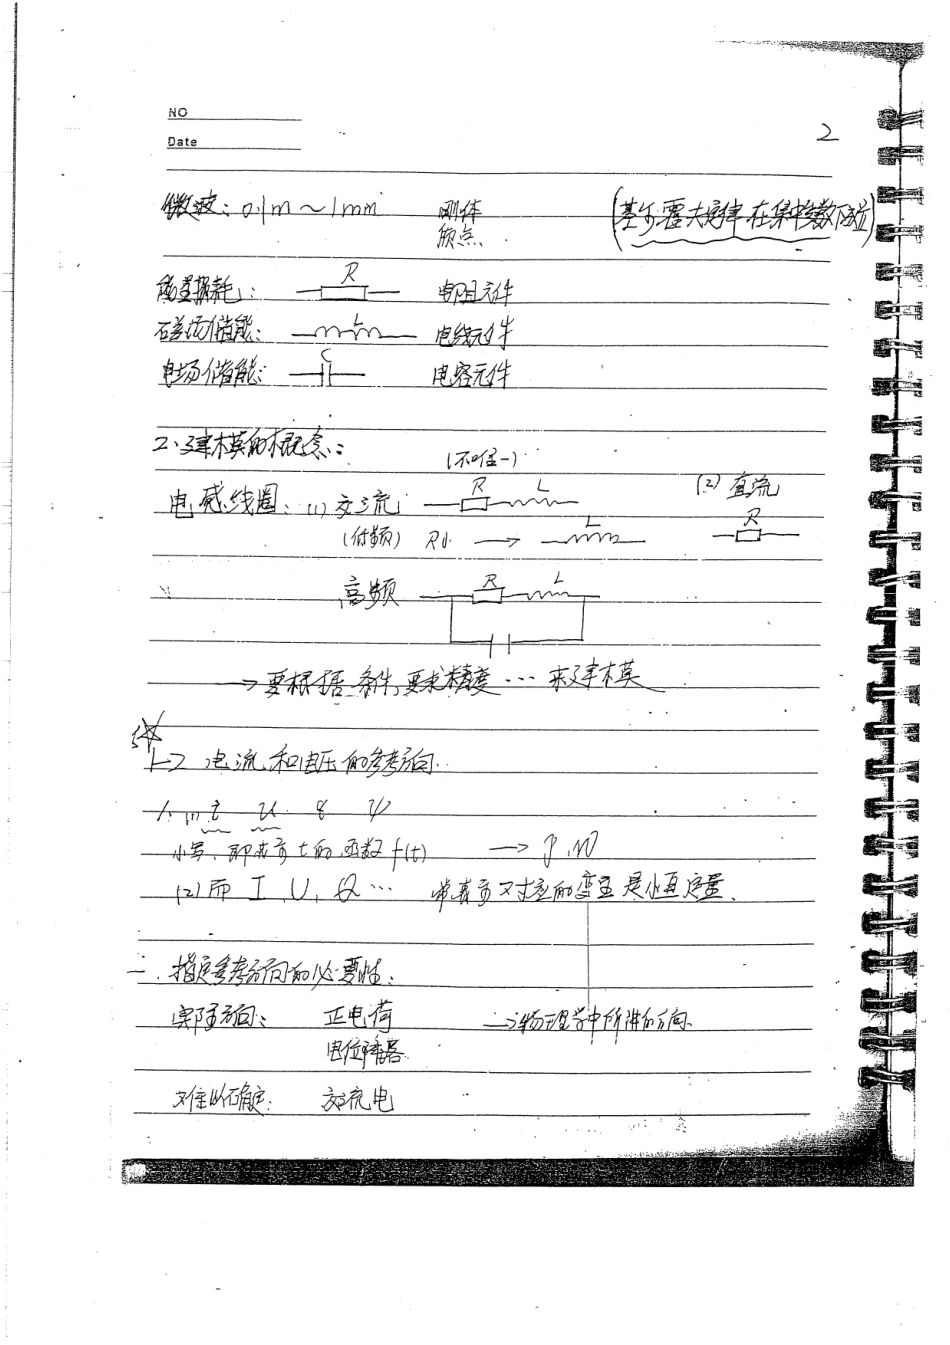 NO
Date
2
微波: 0.1m ~ 1mm 刚体 (基尔霍夫定律在集中参数下成立)
质点
能量损耗: R 电阻元件
磁场储能: L 电线元件
电场储能: C 电容元件
2. 建模的概念: (不唯一)
电感线圈: (1) 交流 R L (2) 直流
(低频) R小 → L R
高频 R L
→ 要根据条件, 要求精度 … 来建模
1-2 电流和电压的参考方向
1. (1) i u q ψ
小写, 即表示 t 的函数 f(t) → p, w
(2) 而 I, U, Q … 常表示对应的变量是恒定量.
二. 指定参考方向的必要性:
实际方向: 正电荷 → 物理学中所讲的方向.
电位降落
难以确定: 交流电